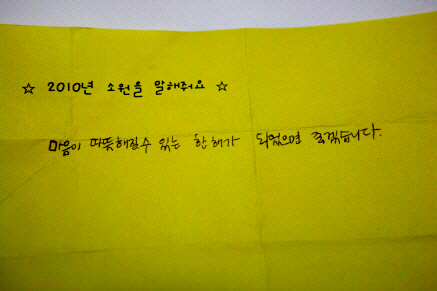 ☆ 2010년 소원을 말해줘요 ☆
마음이 따뜻해질수 있는 한해가 되었으면 좋겠습니다.